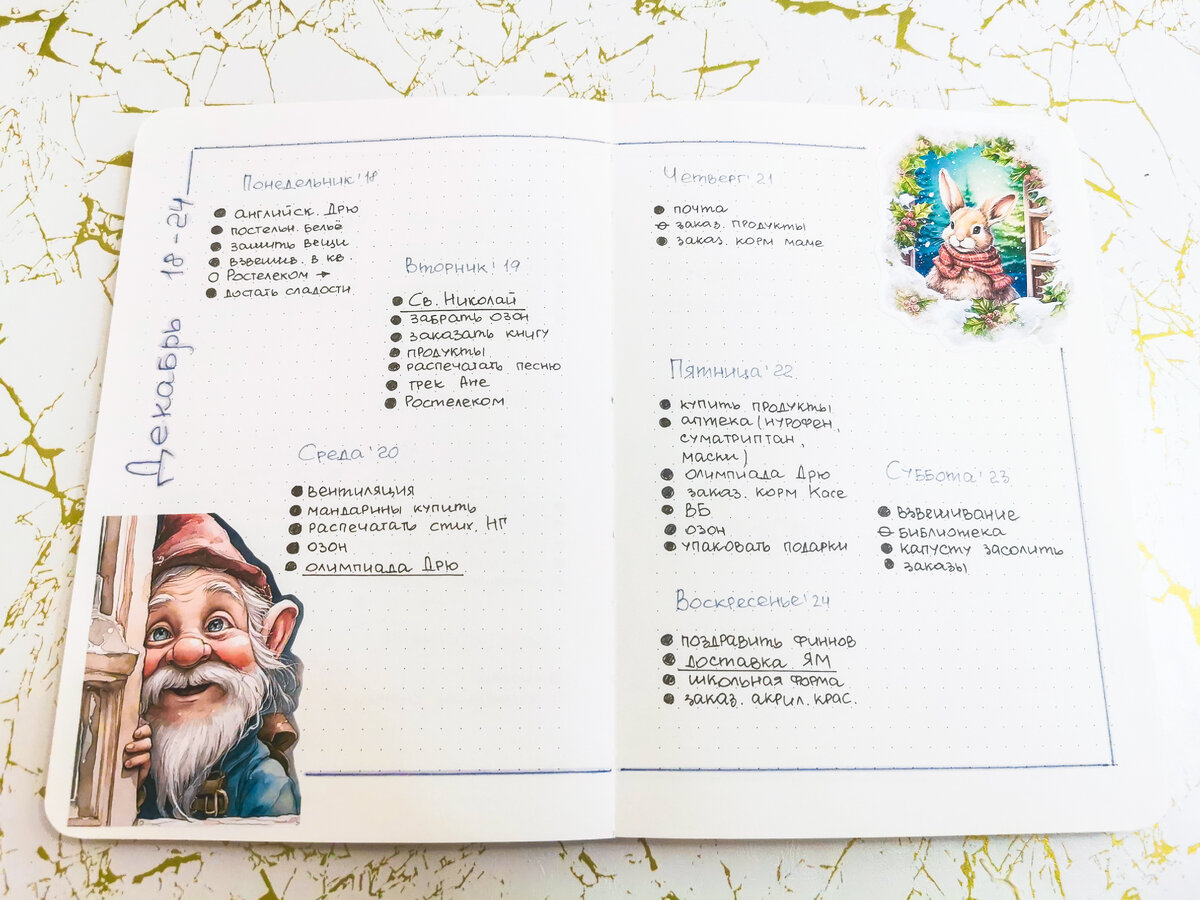 Декабрь 18-24
Понедельник'18
английск. Дрю
постельн. бельё
зашить вещи
взвешив. в кв.
Ростелеком →
достать сладости
Вторник'19
Св. Николай
забрать озон
заказать книгу
продукты
распечатать песню
трек Ане
Ростелеком
Среда'20
вентиляция
мандарины купить
распечатать стих. НГ
озон
олимпиада Дрю
Четверг'21
почта
заказ. продукты
заказ. корм маме
Пятница'22
купить продукты
аптека (нурофен,
суматриптан,
маски)
олимпиада Дрю
заказ. корм Касе
ВБ
озон
упаковать подарки
Суббота'23
взвешивание
библиотека
капусту засолить
заказы
Воскресенье'24
поздравить финнов
доставка ЯМ
школьная форма
заказ. акрил. крас.